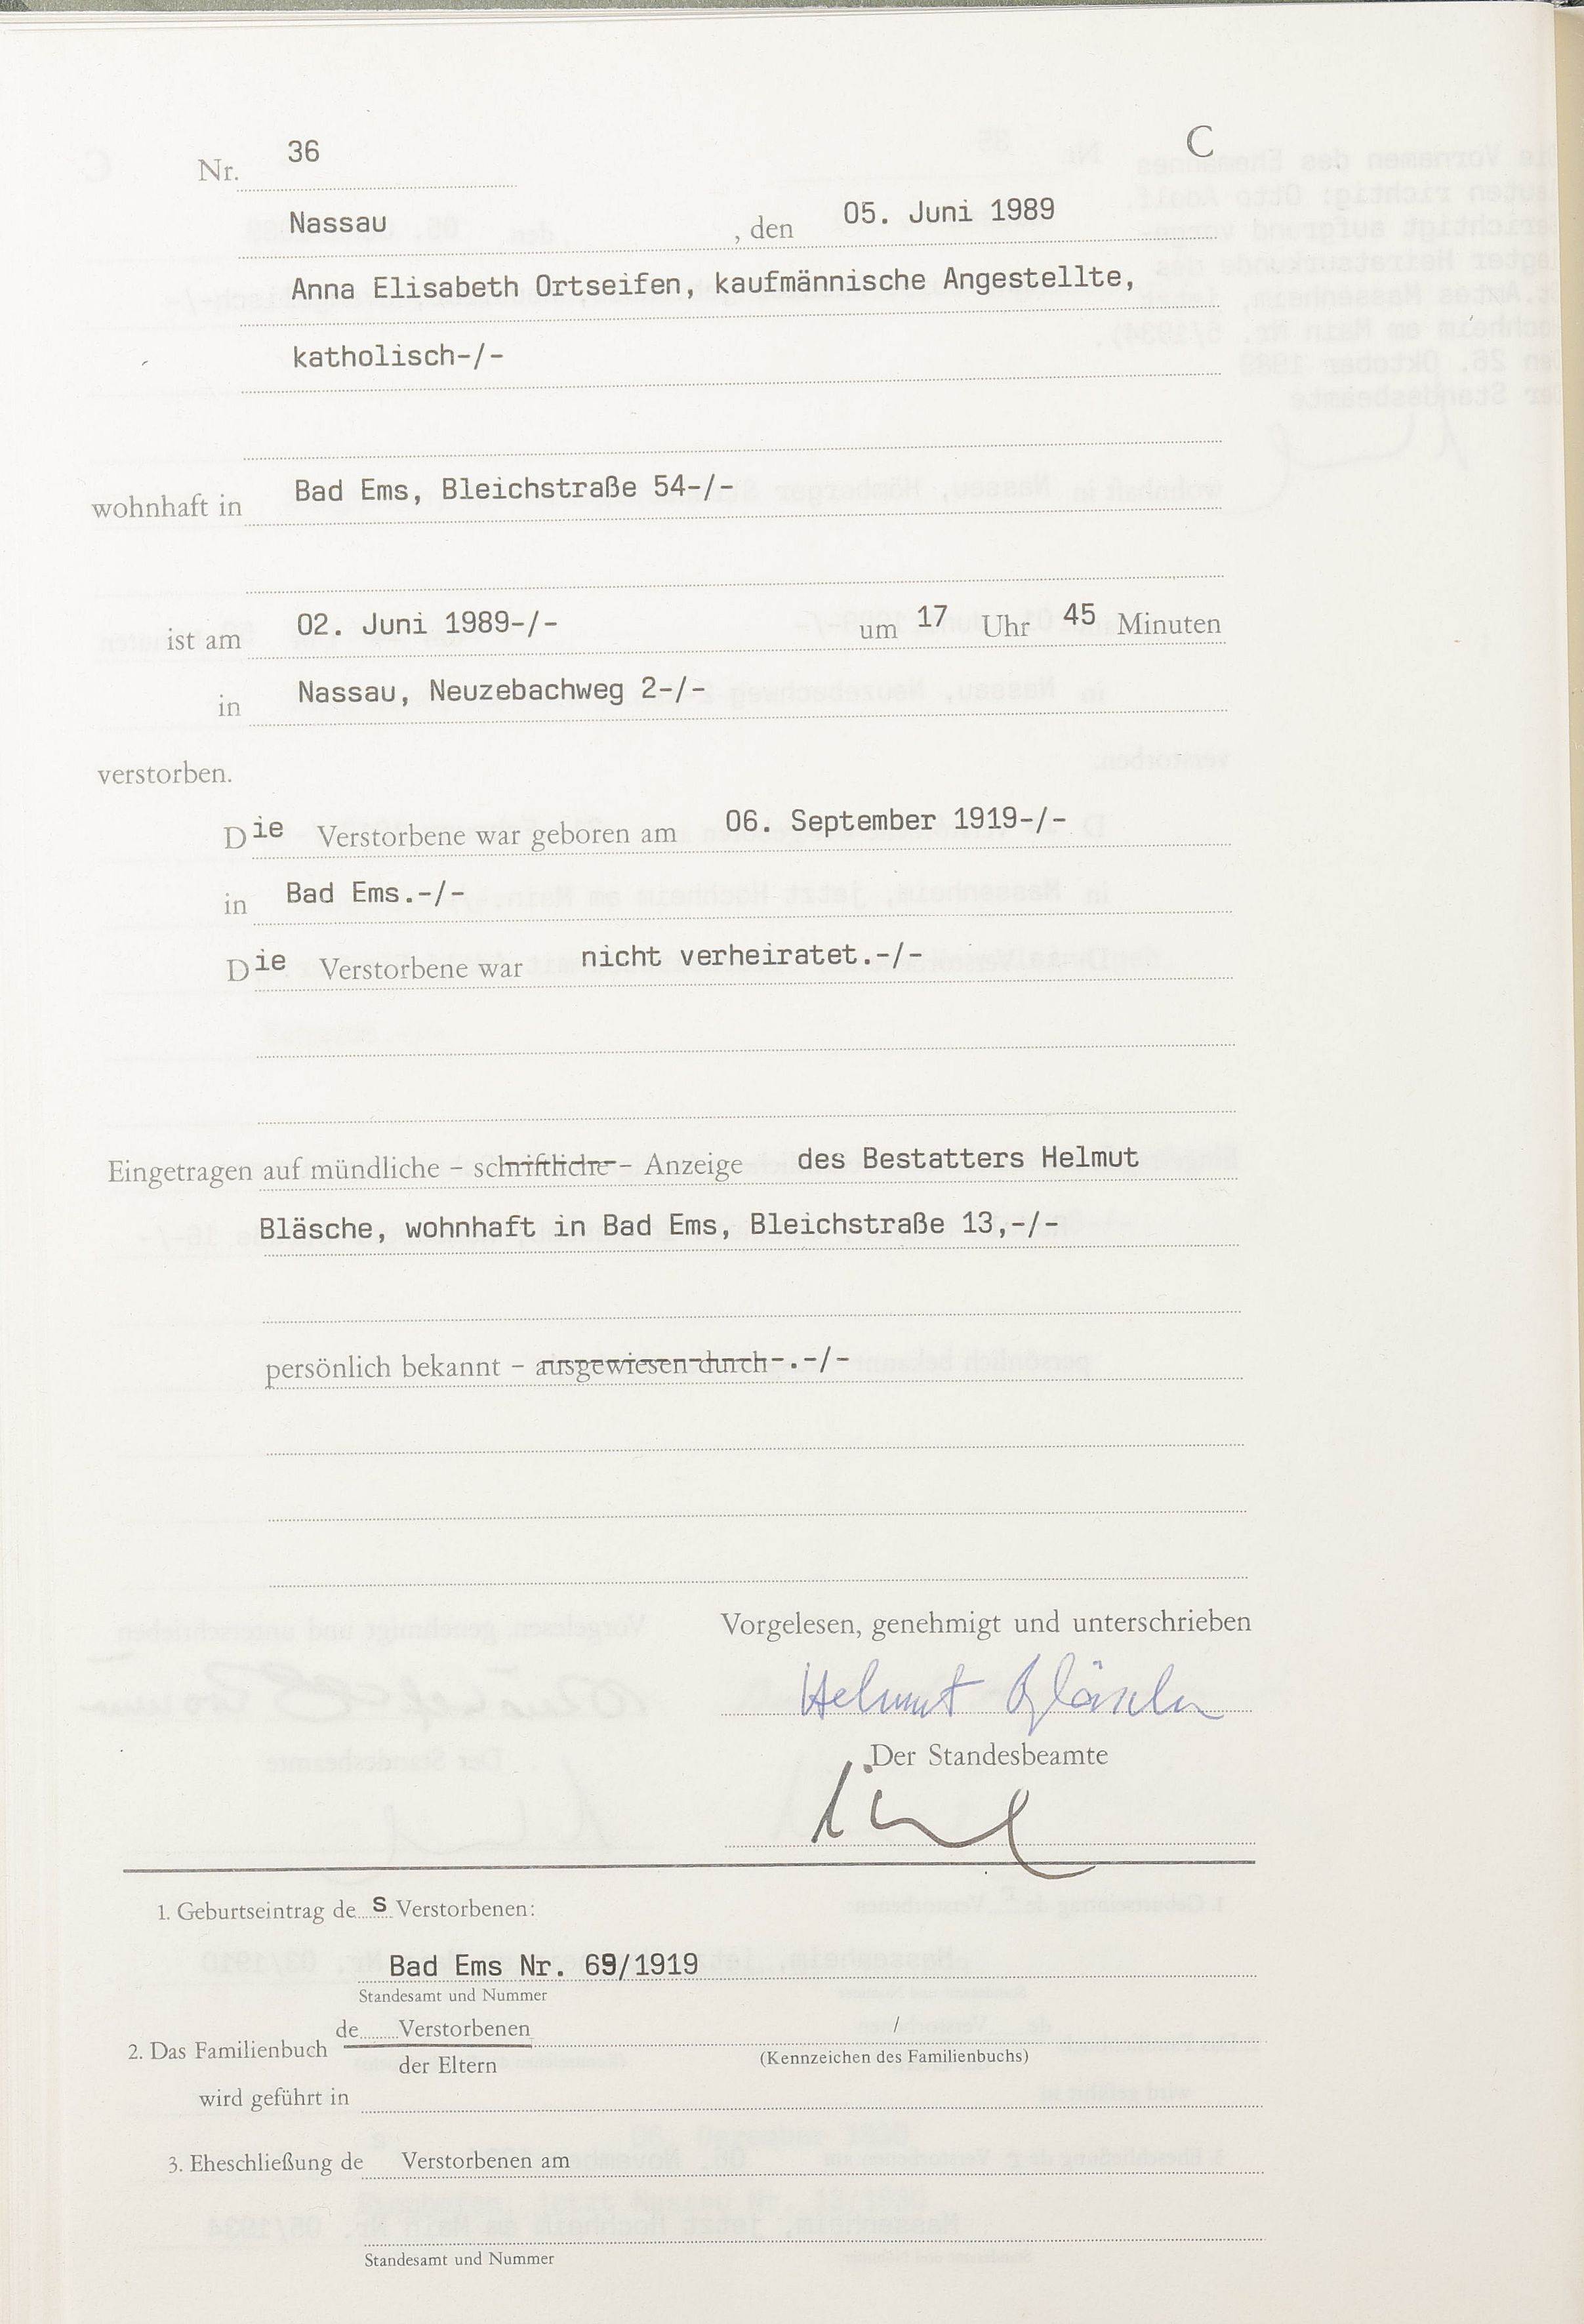 C
Nr. 36
Nassau , den 05. Juni 1989
Anna Elisabeth Ortseifen, kaufmännische Angestellte,
katholisch-/-
wohnhaft in Bad Ems, Bleichstraße 54-/-
ist am 02. Juni 1989-/- um 17 Uhr 45 Minuten
in Nassau, Neuzebachweg 2-/-
verstorben.
Die Verstorbene war geboren am 06. September 1919-/-
in Bad Ems.-/-
Die Verstorbene war nicht verheiratet.-/-
Eingetragen auf mündliche – schriftliche – Anzeige des Bestatters Helmut
Bläsche, wohnhaft in Bad Ems, Bleichstraße 13,-/-
persönlich bekannt – ausgewiesen durch -.-/-
Vorgelesen, genehmigt und unterschrieben
Helmut Bläsche
Der Standesbeamte
1. Geburtseintrag des Verstorbenen:
Bad Ems Nr. 69/1919
Standesamt und Nummer
de Verstorbenen /
2. Das Familienbuch
der Eltern (Kennzeichen des Familienbuchs)
wird geführt in
3. Eheschließung de Verstorbenen am
Standesamt und Nummer